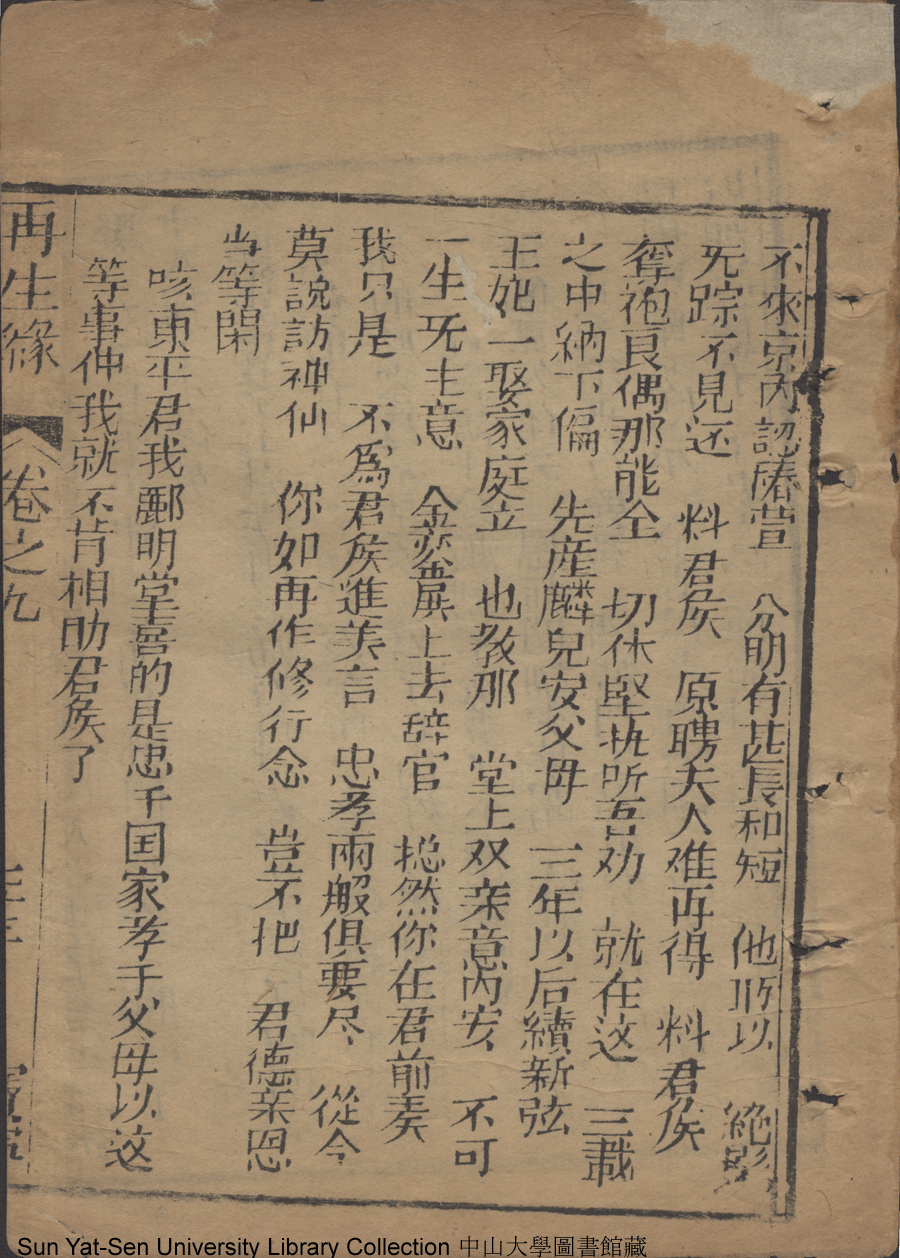 不來京內認萱 分明有甚長和短 他所以 絶影
无踪不見还 料君矦 原聘夫人难再得 料君矦
奪袍良偶那能仝 切休堅执听吾劝 就在这 三載
之中納下偏 先産麟兒安父母 三年以后續新弦
王妃一娶家庭立 也教那 堂上双亲意内安 不可
一生无主意 金堦上去辞官 揔然你在君前奏
我只是 不爲君矦進美言 忠孝兩般俱要尽 從今
莫說訪神仙 你如再作修行念 豈不把 君德亲恩
当等閑
咳東平君我酈明堂喜的是忠于国家孝于父母以这
等事仲我就不肯相助君矦了
再生緣 卷之九
Sun Yat-Sen University Library Collection 中山大學圖書館藏